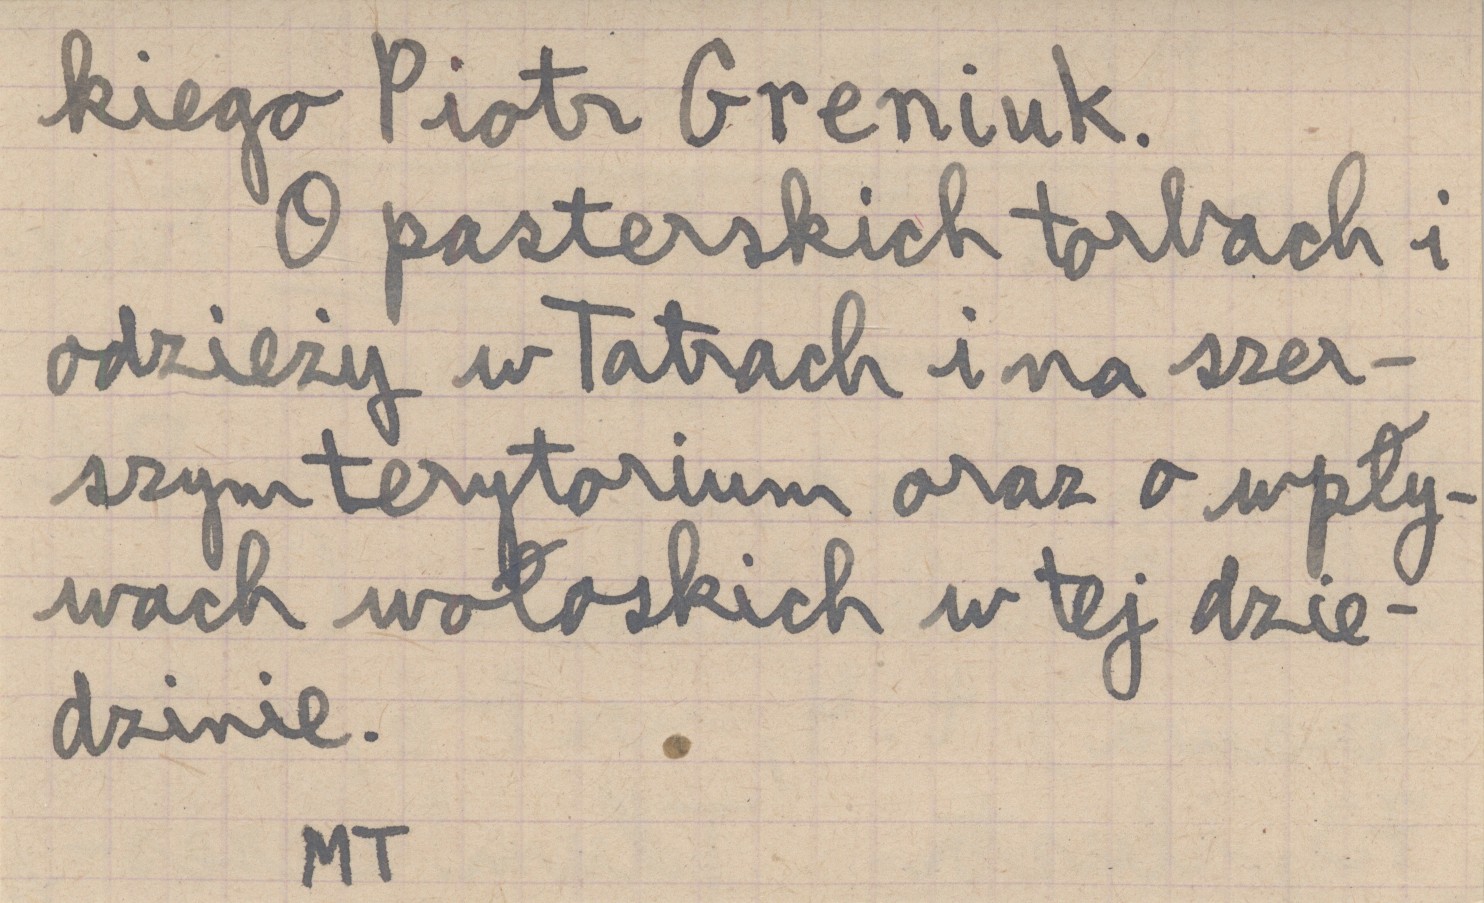 kiego Piotr Greniuk.
O pasterskich torbach i
odzieży w Tatrach i na szer-
szym terytorium oraz o wpły-
wach wołoskich w tej dzie-
dzinie.
MT